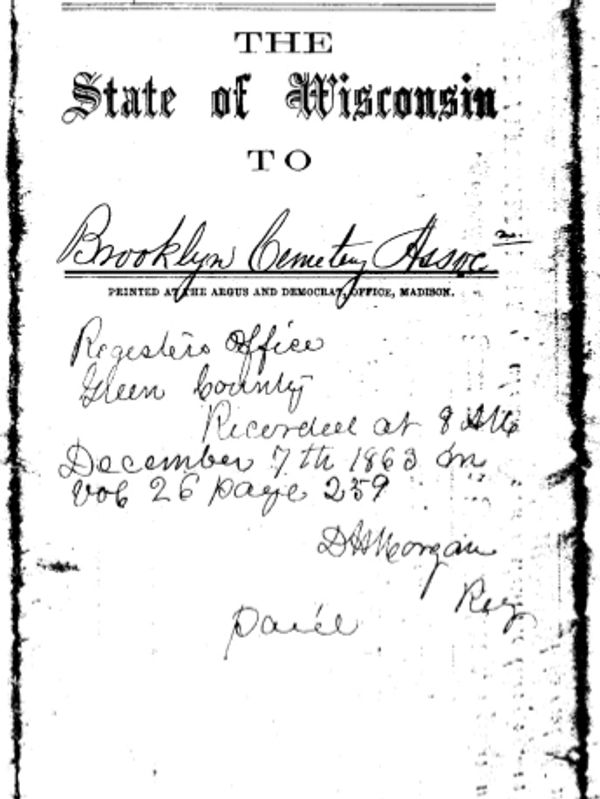 THE
State of Wisconsin
TO
Brooklyn Cemetery Assoc n.
PRINTED AT THE ARGUS AND DEMOCRAT, OFFICE, MADISON.
Registers Office
Green County
Recorded at 8 AM
December 7th 1863 in
vol 26 page 259
D H Morgan
Reg
Paid